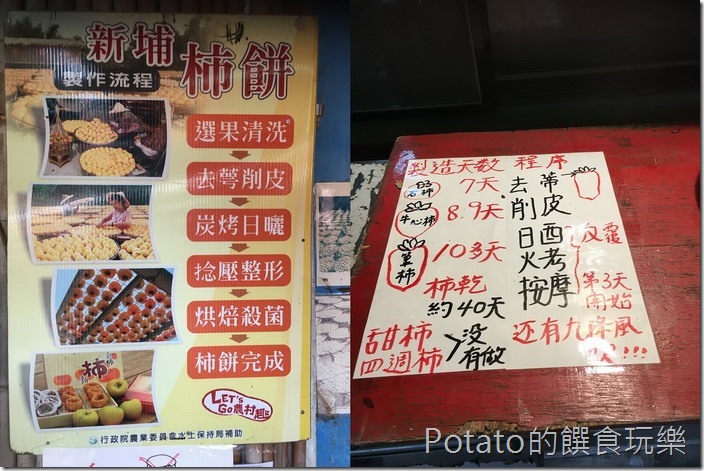 新埔
柿餅
製作流程
選果清洗
去萼削皮
炭烤日曬
捻壓整形
烘焙殺菌
柿餅完成
柿
LET's
Go農村趣
行政院農業委員會水土保持局補助
製造天数 程序
石柿 7天
牛心柿 8.9天
筆柿 10多天
柿乾
約40天
甜柿
四週柿
没有做
去蒂
削皮
日晒
火考
按摩
反覆
第3天
開始
还有九降風
吹!!!
Potato的饌食玩樂